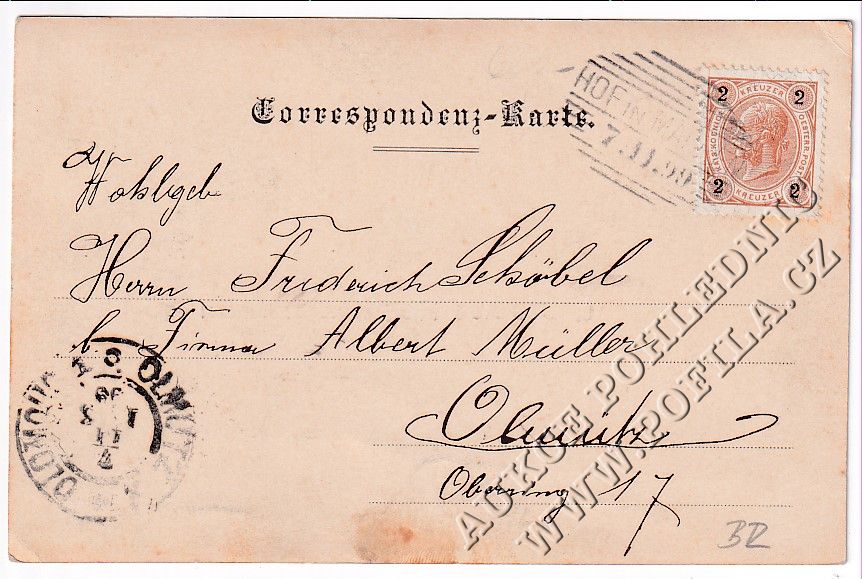 Correspondenz-Karte.
HOF IN MÄ
7.11.99
2 KREUZER 2
2 KREUZER 2
Wohlgeb
Herrn Friderich Schöbel
b. Firma Albert Müller
Olmütz
Oberring 17
OLMÜTZ
OLOMOUC
AUKCE POHLEDNIC
WWW.POFILA.CZ